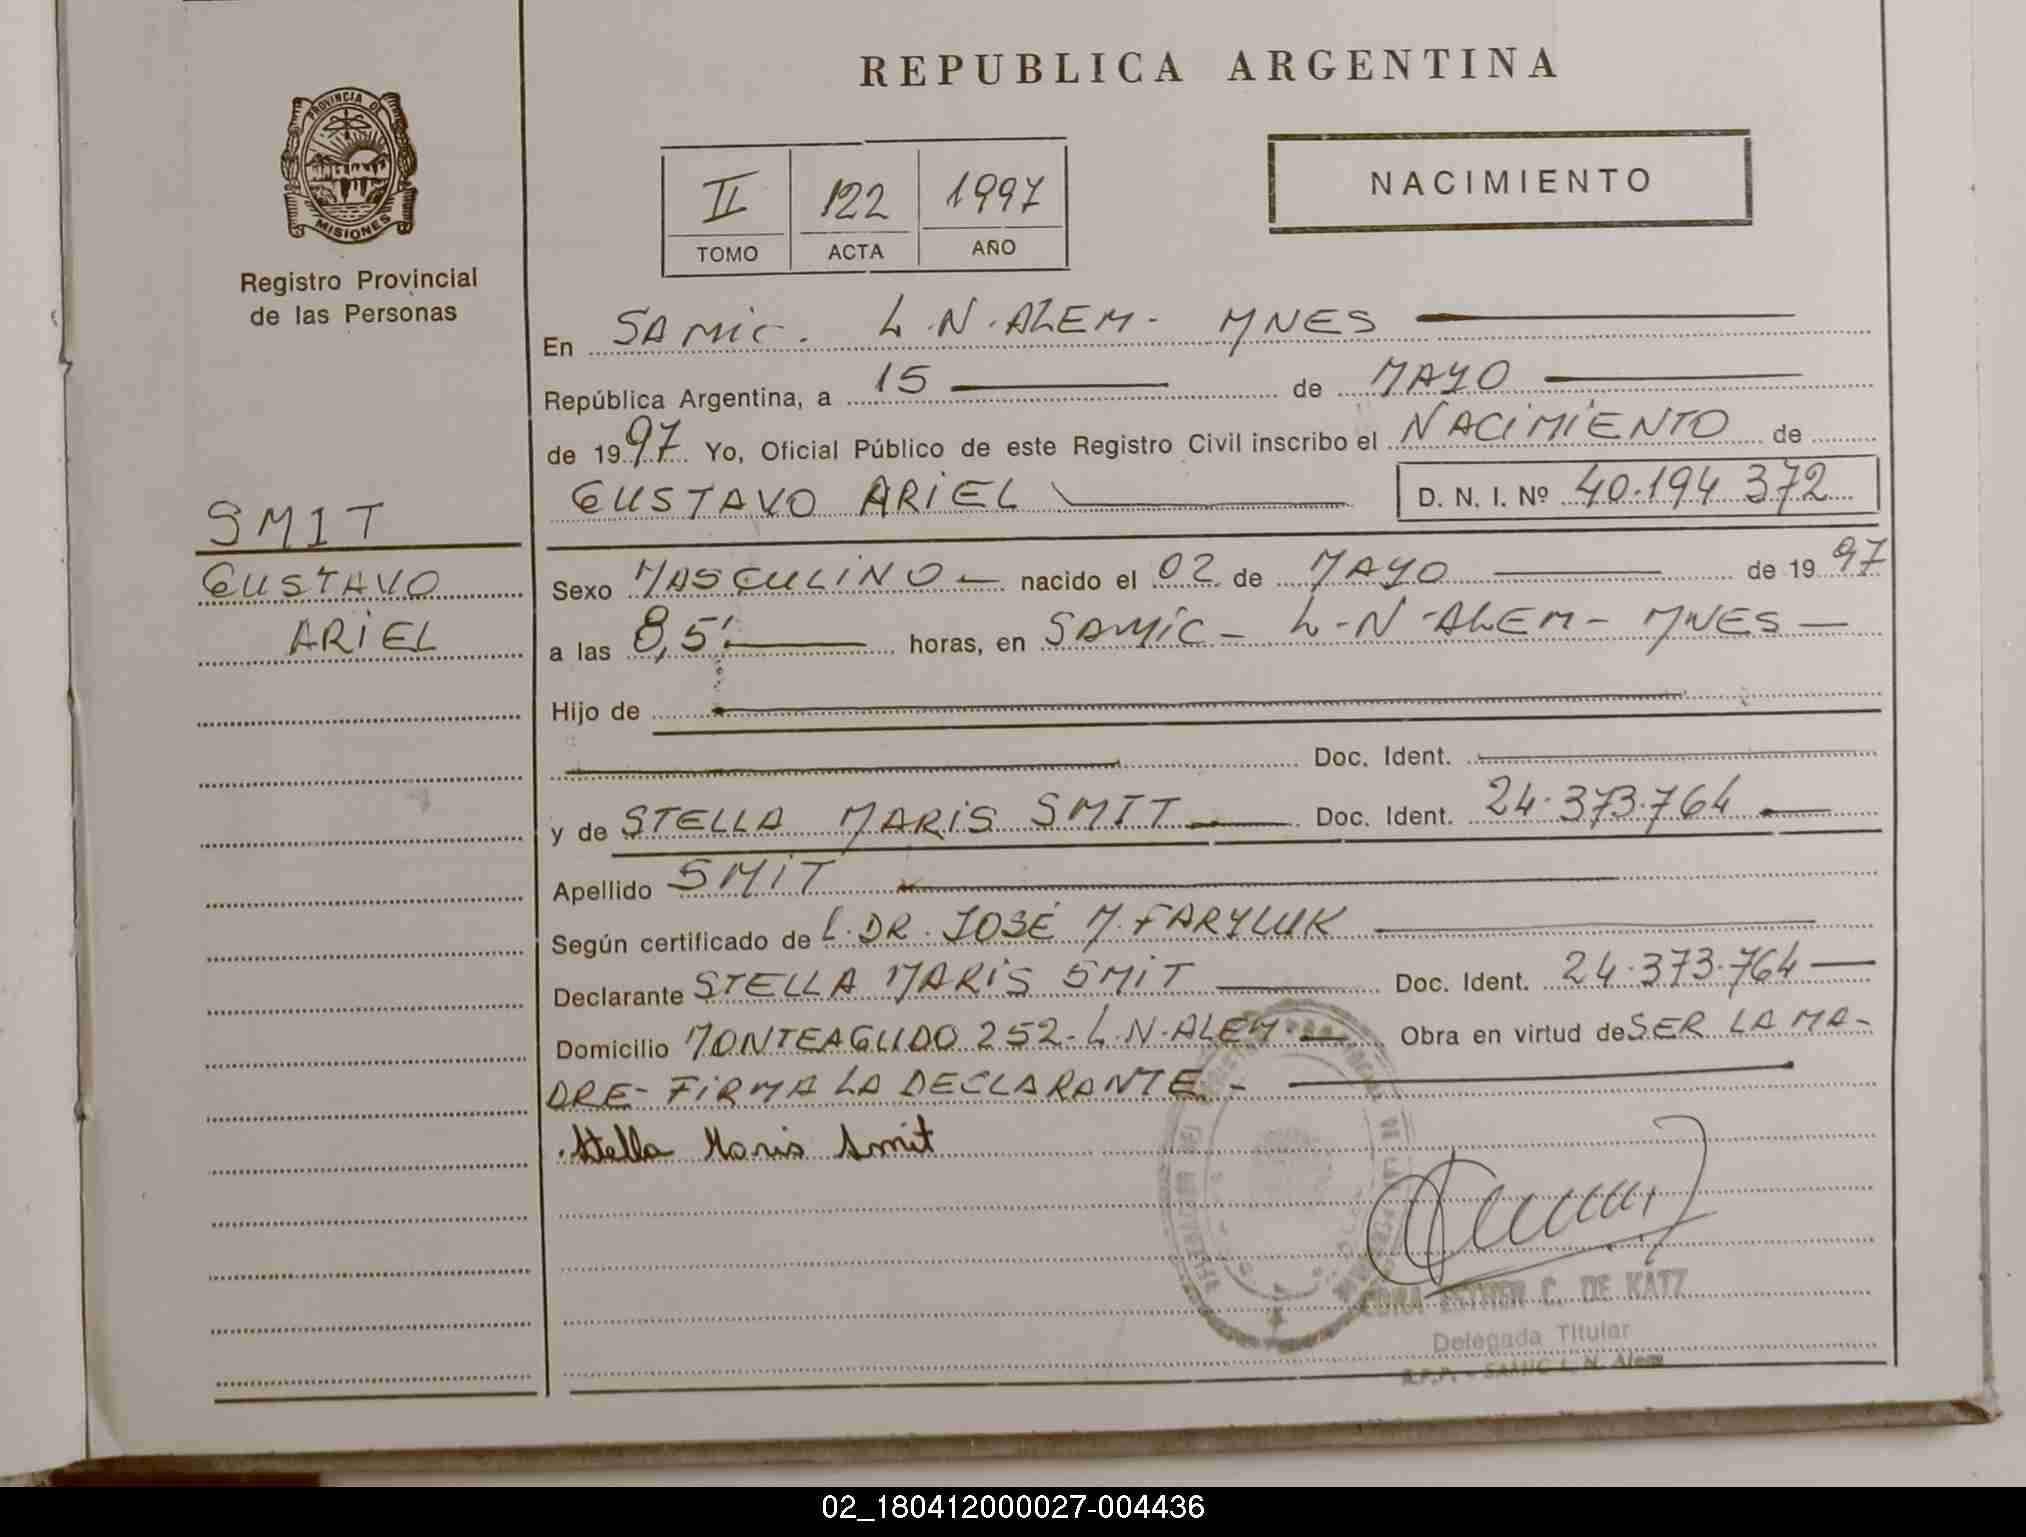 REPUBLICA ARGENTINA
PROVINCIA DE
MISIONES
Registro Provincial
de las Personas
II 122 1997
TOMO ACTA AÑO
NACIMIENTO
En SAMIC. L.N.ALEM- MNES
República Argentina, a 15 de MAYO
de 1997 Yo, Oficial Público de este Registro Civil inscribo el NACIMIENTO de
GUSTAVO ARIEL D. N. I. Nº 40.194.372
SMIT
GUSTAVO
ARIEL
Sexo MASCULINO nacido el 02 de MAYO de 1997
a las 8,5 horas, en SAMIC - L-N-ALEM - MNES -
Hijo de
Doc. Ident.
y de STELLA MARIS SMIT Doc. Ident. 24.373.764
Apellido SMIT
Según certificado de L. DR. JOSÉ M. FARYLUK
Declarante STELLA MARIS SMIT Doc. Ident. 24.373.764
Domicilio MONTEAGUDO 252-L.N-ALEM- Obra en virtud de SER LA MA-
DRE- FIRMA LA DECLARANTE -
Stella Maris Smit
EDRA ESTHER C. DE KATZ
Delegada Titular
R.P.P. - SAMIC L. N. Alem
02_180412000027-004436